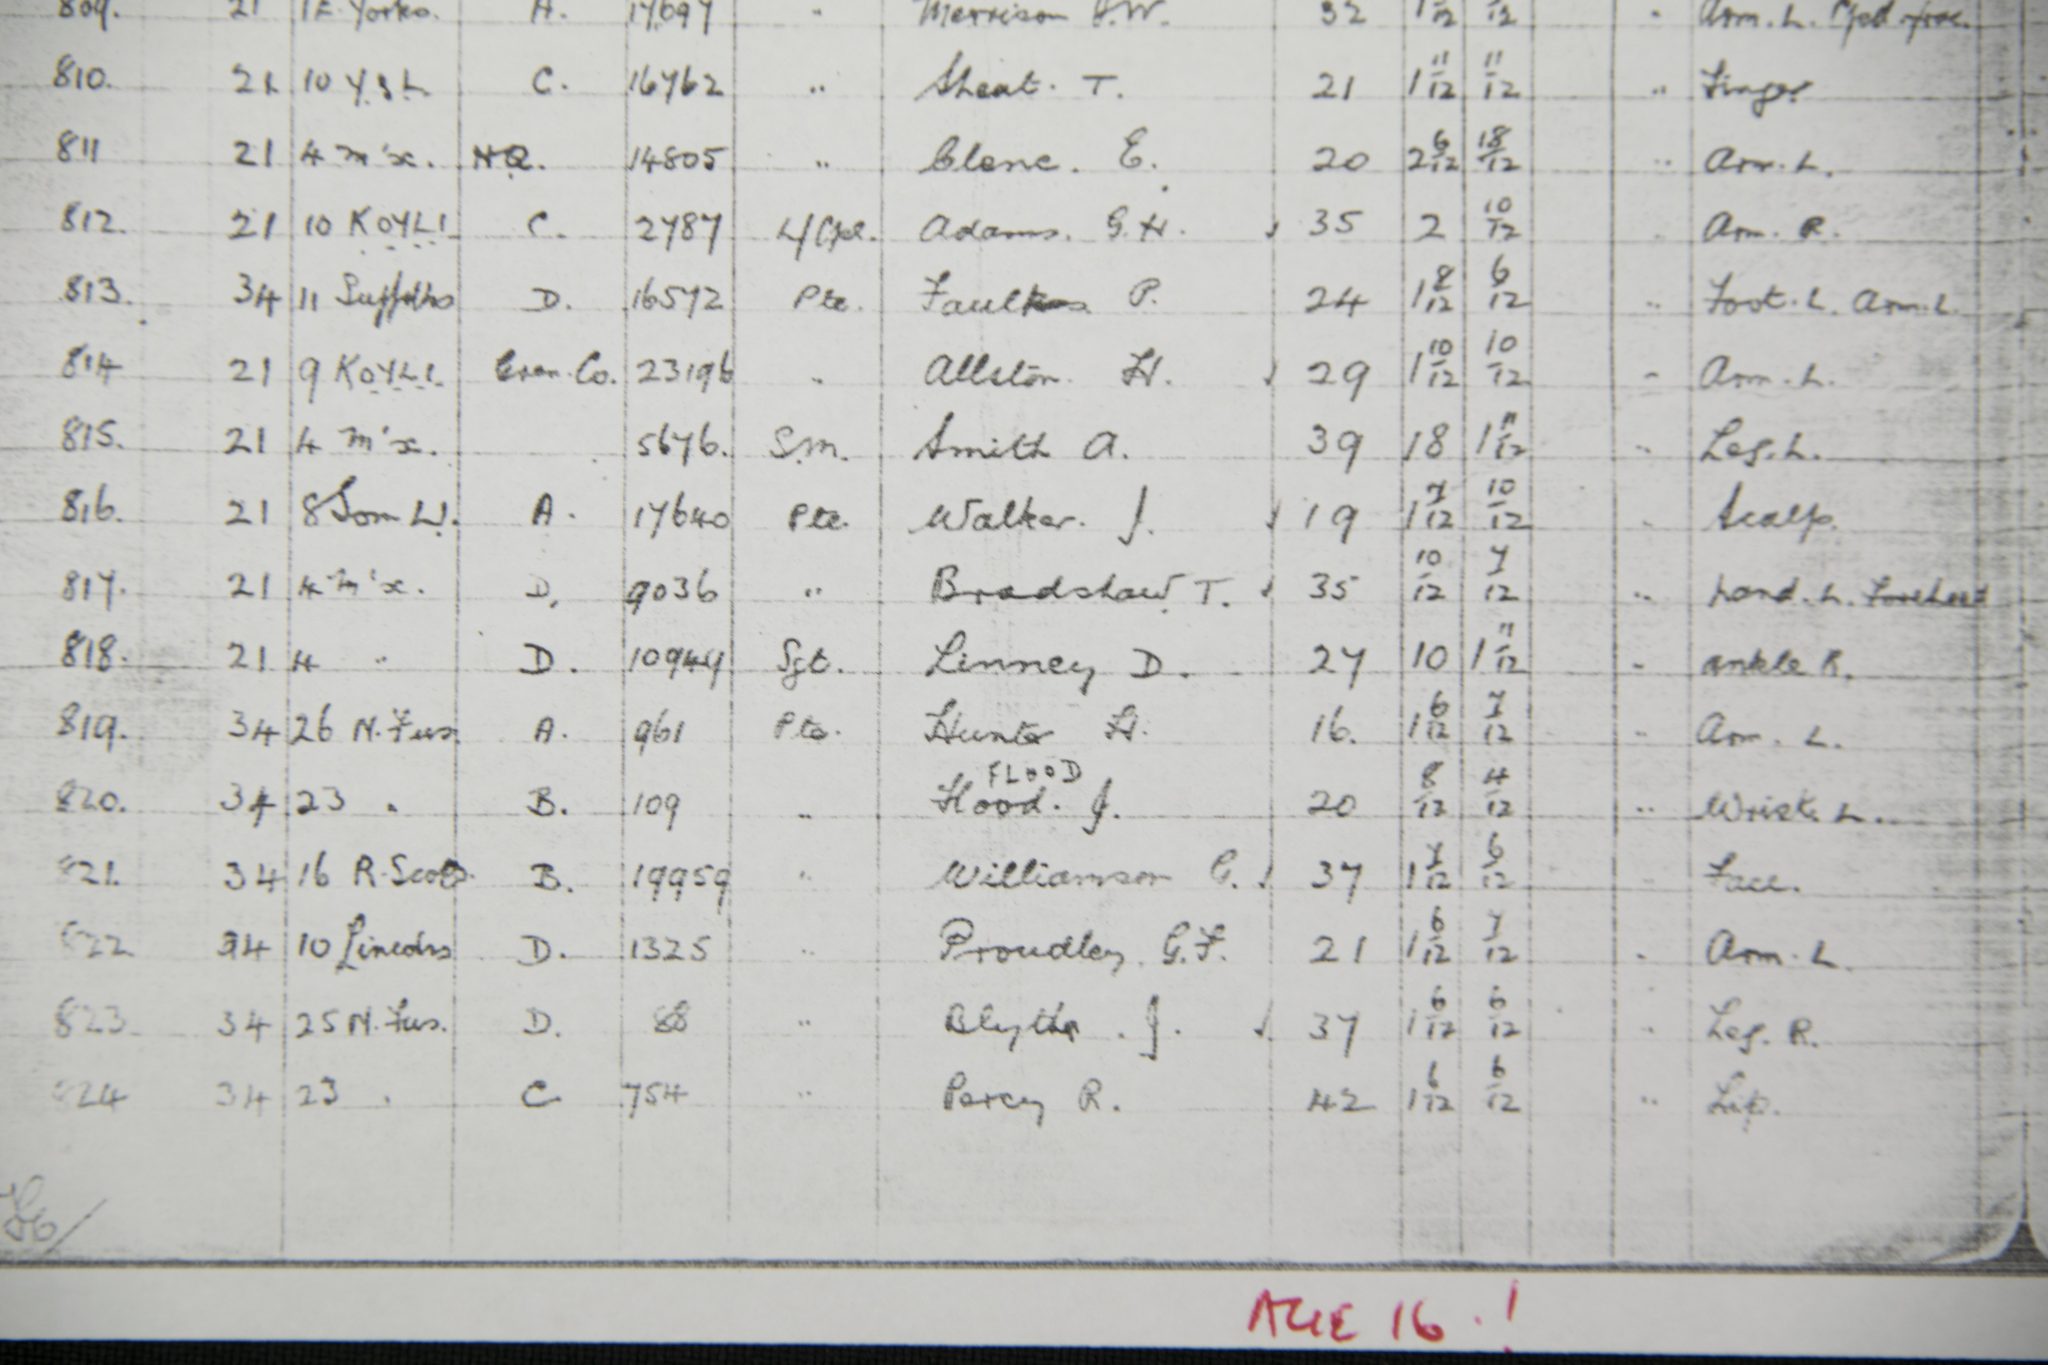 809. 21 1 E. Yorks. A. 17697 " Morrison J.W. 32 1 /12 /12 " Arm. L.
810. 21 10 Y & L C. 16762 " Sheat. T. 21 1 11/12 11/12 " Finger
811 21 4 M'x. HQ. 14805 " E. 20 2 6/12 18/12 " Arm. L.
812. 21 10 KOYLI C. 2787 L/Cpl. Adams. G.H. 35 2 10/12 " Arm. R.
813. 34 11 Suffolks D. 16572 Pte. P. 24 1 8/12 6/12 " Foot. L. Arm. L.
814 21 9 KOYLI. Gren. Co. 23196 " Allston H. 29 1 10/12 10/12 " Arm. L.
815. 21 4 M'x. 5676. S.M. Smith A. 39 18 1 11/12 " Leg. L.
816. 21 8 Som L.I. A. 17640 Pte. Walker. J. 19 1 7/12 10/12 " Scalp.
817. 21 4 M'x. D. 9036 " Bradshaw T. 35 10/12 7/12 " Hand. L. Forehead
818. 21 4 " D. Sgt. Linney D. 27 10 1 11/12 " Ankle R.
819. 34 26 N. Fus. A. 961 Pte. Hunter H. 16. 1 6/12 7/12 " Arm. L.
FLOOD
820. 34 23 " B. 109 " Hood. J. 20 8/12 4/12 " Wrist. L.
821. 34 16 R. Scots. B. 19959 " Williamson G. 37 1 7/12 6/12 " Face.
822 34 10 Lincolns D. 1325 " Proudley. G.F. 21 1 6/12 7/12 " Arm. L.
823 34 25 N. Fus. D. 88 " Blythe . J. 37 1 6/12 6/12 " Leg. R.
824 34 23 " C 754 " Percy R. 42 1 6/12 6/12 " Lip.
AGE 16 . !